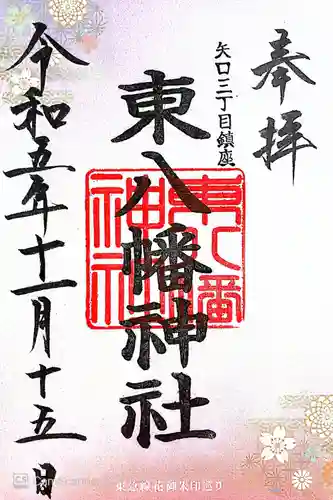 奉拝
矢口三丁目鎮座
東八幡神社
東八幡神社
令和五年十一月十五日
東急線花御朱印巡り
CS CamScanner